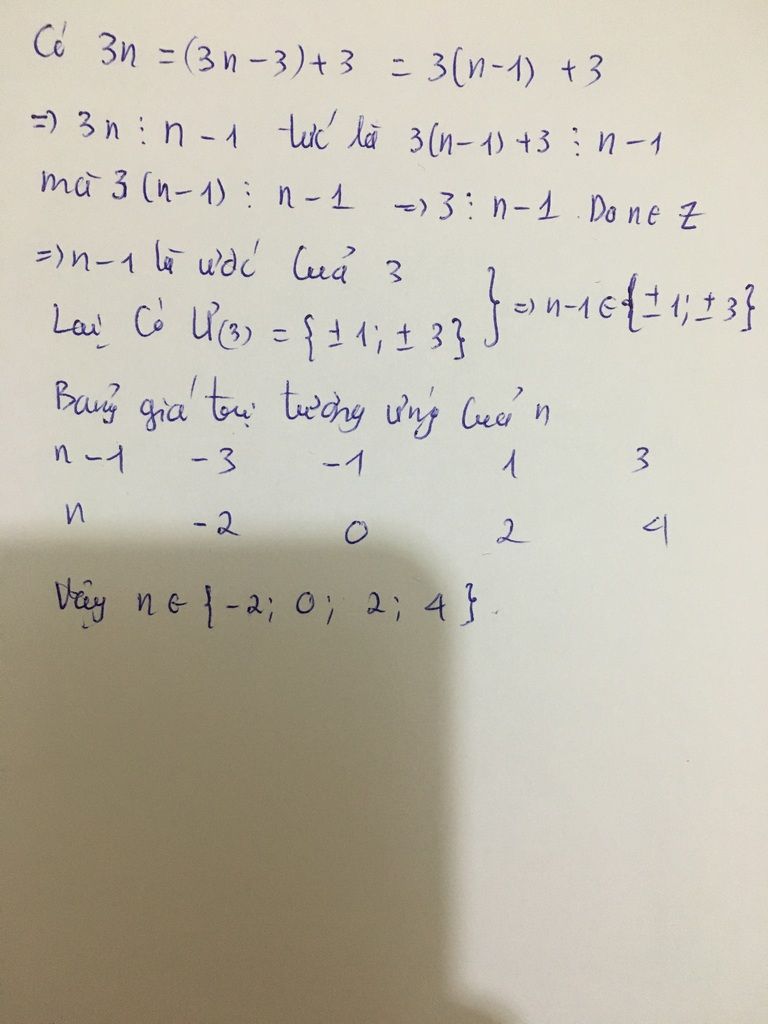 Có 3n = (3n-3)+3 = 3(n-1) +3
=> 3n ⋮ n-1 tức là 3(n-1)+3 ⋮ n-1
mà 3(n-1) ⋮ n-1 => 3 ⋮ n-1. Do n∈Z
=> n-1 là ước của 3
Lại có Ư(3) = {±1; ±3} } => n-1 ∈ {±1; ±3}
Bảng giá trị tương ứng của n
n-1 -3 -1 1 3
n -2 0 2 4
Vậy n ∈ {-2; 0; 2; 4}.